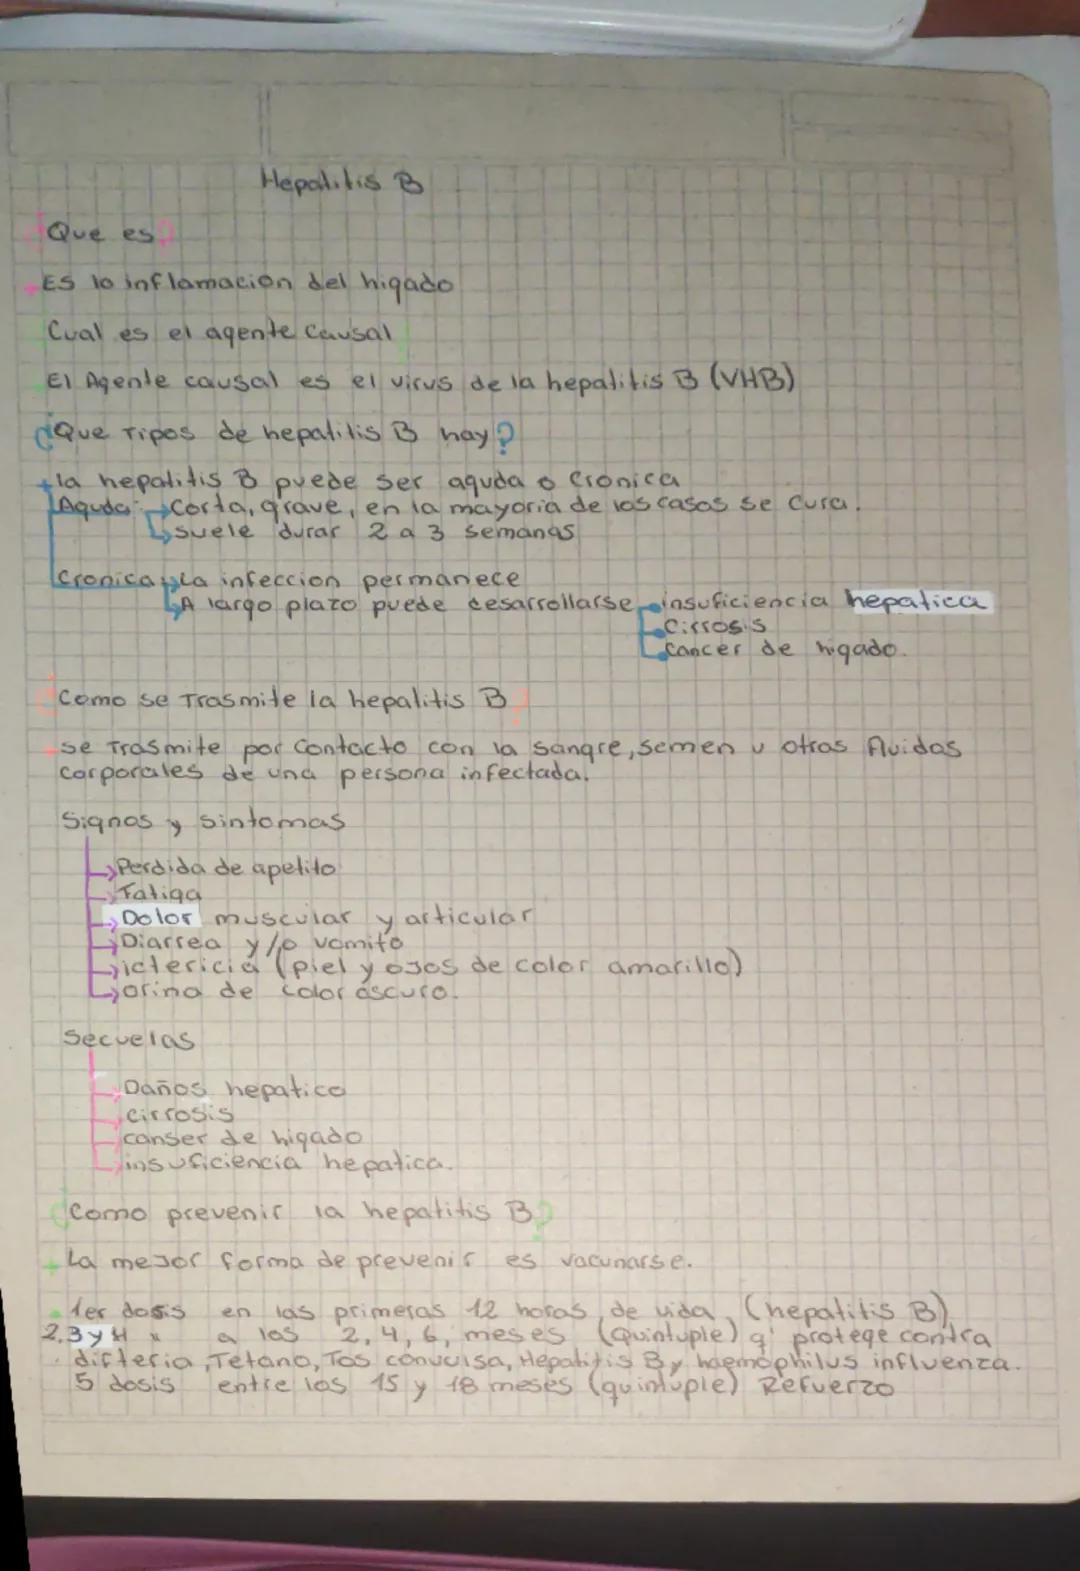 Hepatitis B
¿Que es?
Es la inflamacion del higado
Cual es el agente causal
El Agente causal es el virus de la hepatitis B (VHB)
¿Que Tipos de hepatitis B hay?
la hepatitis B puede ser aguda o cronica
Aguda: Corta, grave, en la mayoria de los casos se cura.
suele durar 2 a 3 semanas
Cronica La infeccion permanece
A largo plazo puede desarrollarse insuficiencia hepatica
Cirrosis
Cancer de higado.
¿Como se Trasmite la hepatitis B?
se Trasmite por contacto con la sangre, semen u otros fluidos
corporales de una persona infectada.
Signos y sintomas
Perdida de apetito
Fatiga
Dolor muscular y articular
Diarrea y/o vomito
ictericia (piel y ojos de color amarillo)
orina de color oscuro.
Secuelas
Daños hepatico
cirrosis
canser de higado
insuficiencia hepatica.
¿Como prevenir la hepatitis B?
La mejor forma de prevenir es vacunarse.
1er dosis en las primeras 12 horas de vida (hepatitis B)
2,3 y 4 " a los 2, 4, 6, meses (Quintuple) q' protege contra
difteria, Tetano, Tos convulsa, Hepatitis B y haemophilus influenza.
5 dosis entre los 15 y 18 meses (quintuple) Refuerzo